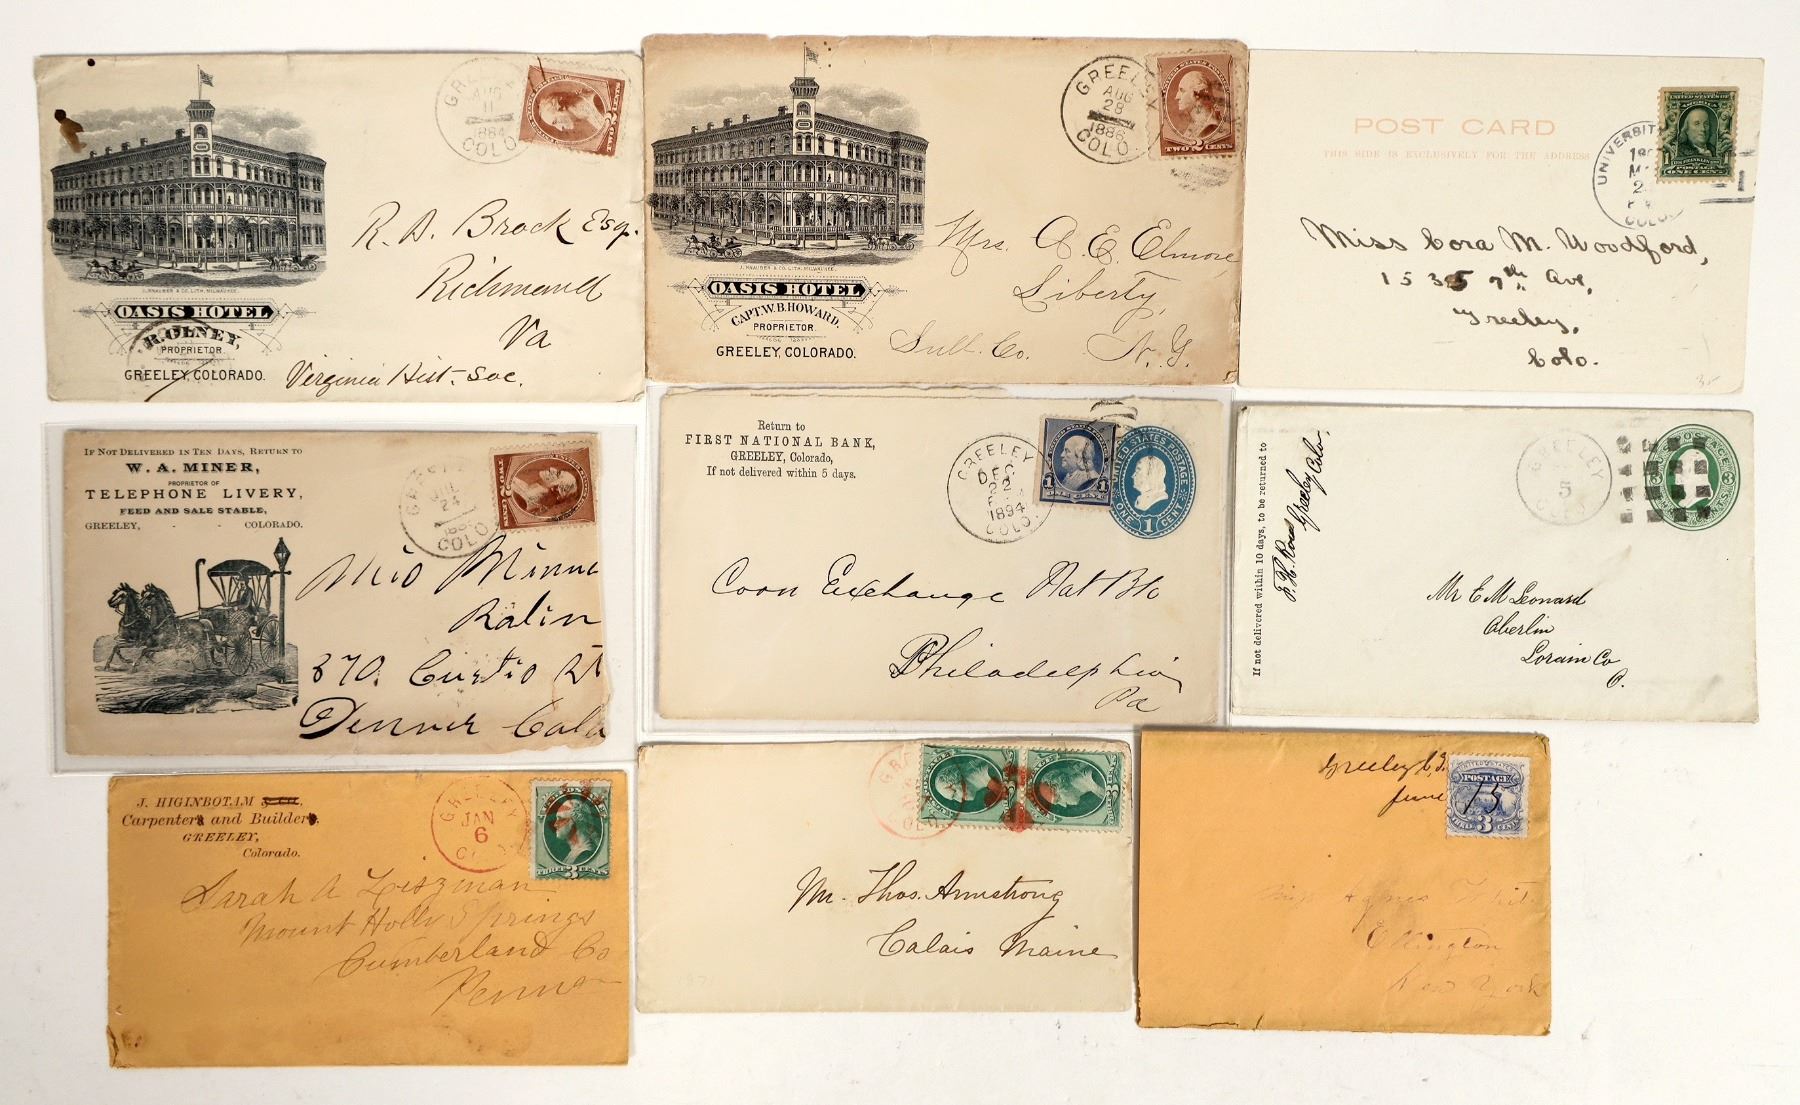 GREELEY
AUG
11
1884
COLO.
J. KNAUBER & CO. LITH. MILWAUKEE.
OASIS HOTEL
R. OLNEY,
PROPRIETOR.
GREELEY, COLORADO.
R. A. Brock Esq.
Richmond
Va
Virginia Hist. Soc.
GREELEY
AUG
28
1886
COLO.
TWO 2 CENTS
J. KNAUBER & CO. LITH. MILWAUKEE.
OASIS HOTEL
CAPT. W. B. HOWARD.
PROPRIETOR.
GREELEY, COLORADO.
Mrs. A. E. Elmore
Liberty,
Sull. Co. N. Y.
POST CARD
THIS SIDE IS EXCLUSIVELY FOR THE ADDRESS
UNIVERSITY
COLO.
POSTAGE
ONE CENT
Miss Cora M. Woodford,
1535 9th Ave,
Greeley,
Colo.
35
IF NOT DELIVERED IN TEN DAYS, RETURN TO
W. A. MINER,
PROPRIETOR OF
TELEPHONE LIVERY,
FEED AND SALE STABLE,
GREELEY, - - COLORADO.
24
COLO
370. Curtis St
Denver Colo
Return to
FIRST NATIONAL BANK,
GREELEY, Colorado,
If not delivered within 5 days.
GREELEY
DEC
2
1894
COLO.
1 ONE CENT 1
UNITED STATES POSTAGE
ONE 1 CENT
Corn Exchange Nat Bk
Philadelphia
Pa
If not delivered within 10 days, to be returned to
Greeley Colo.
GREELEY
5
COLO
Mr E M Leonard
Oberlin
Lorain Co
O.
J. HIGINBOTAM & CO.,
Carpenters and Builders,
GREELEY,
Colorado.
GREELEY
JAN
6
THREE 3 CENTS
Sarah A
Mount Holly Springs
Cumberland Co
Penna
Mr. Thos. Armstrong
Calais Maine
1871
Greeley C.T.
June 15
POSTAGE
THREE 3 CENTS
Miss Agnes White
Ellington
New York